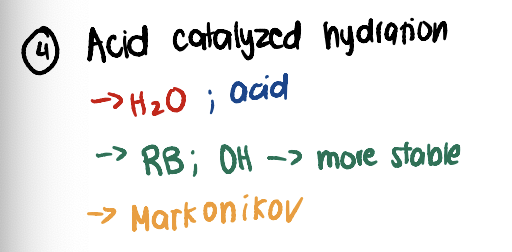 ④ Acid catalyzed hydration
→ H₂O ; acid
→ RB ; OH → more stable
→ Markonikov